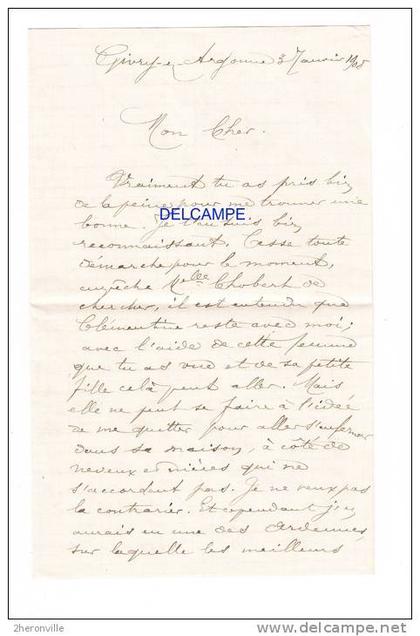 Givry-e-Argonne 3 Janvier 1908
Mon Cher.
Vraiment tu as pris bien
de la peine pour me trouver une
bonne. Je t'en suis bien
DELCAMPE.
reconnaissant. Cesse toute
démarche pour le moment,
empêche Melle Chobert de
chercher, il est entendu que
Clémentine reste avec moi;
avec l'aide de cette femme
que tu as vue et de sa petite
fille celà peut aller. Mais
elle ne peut se faire à l'idée
de me quitter pour aller s'enfermer
dans sa maison, à côté de
neveux et nièces qui ne
s'accordent pas. Je ne veux pas
la contrarier. Et cependant j'en
aurais eu une des Ardennes,
sur laquelle les meilleurs
© 2heronville
delcampe.net